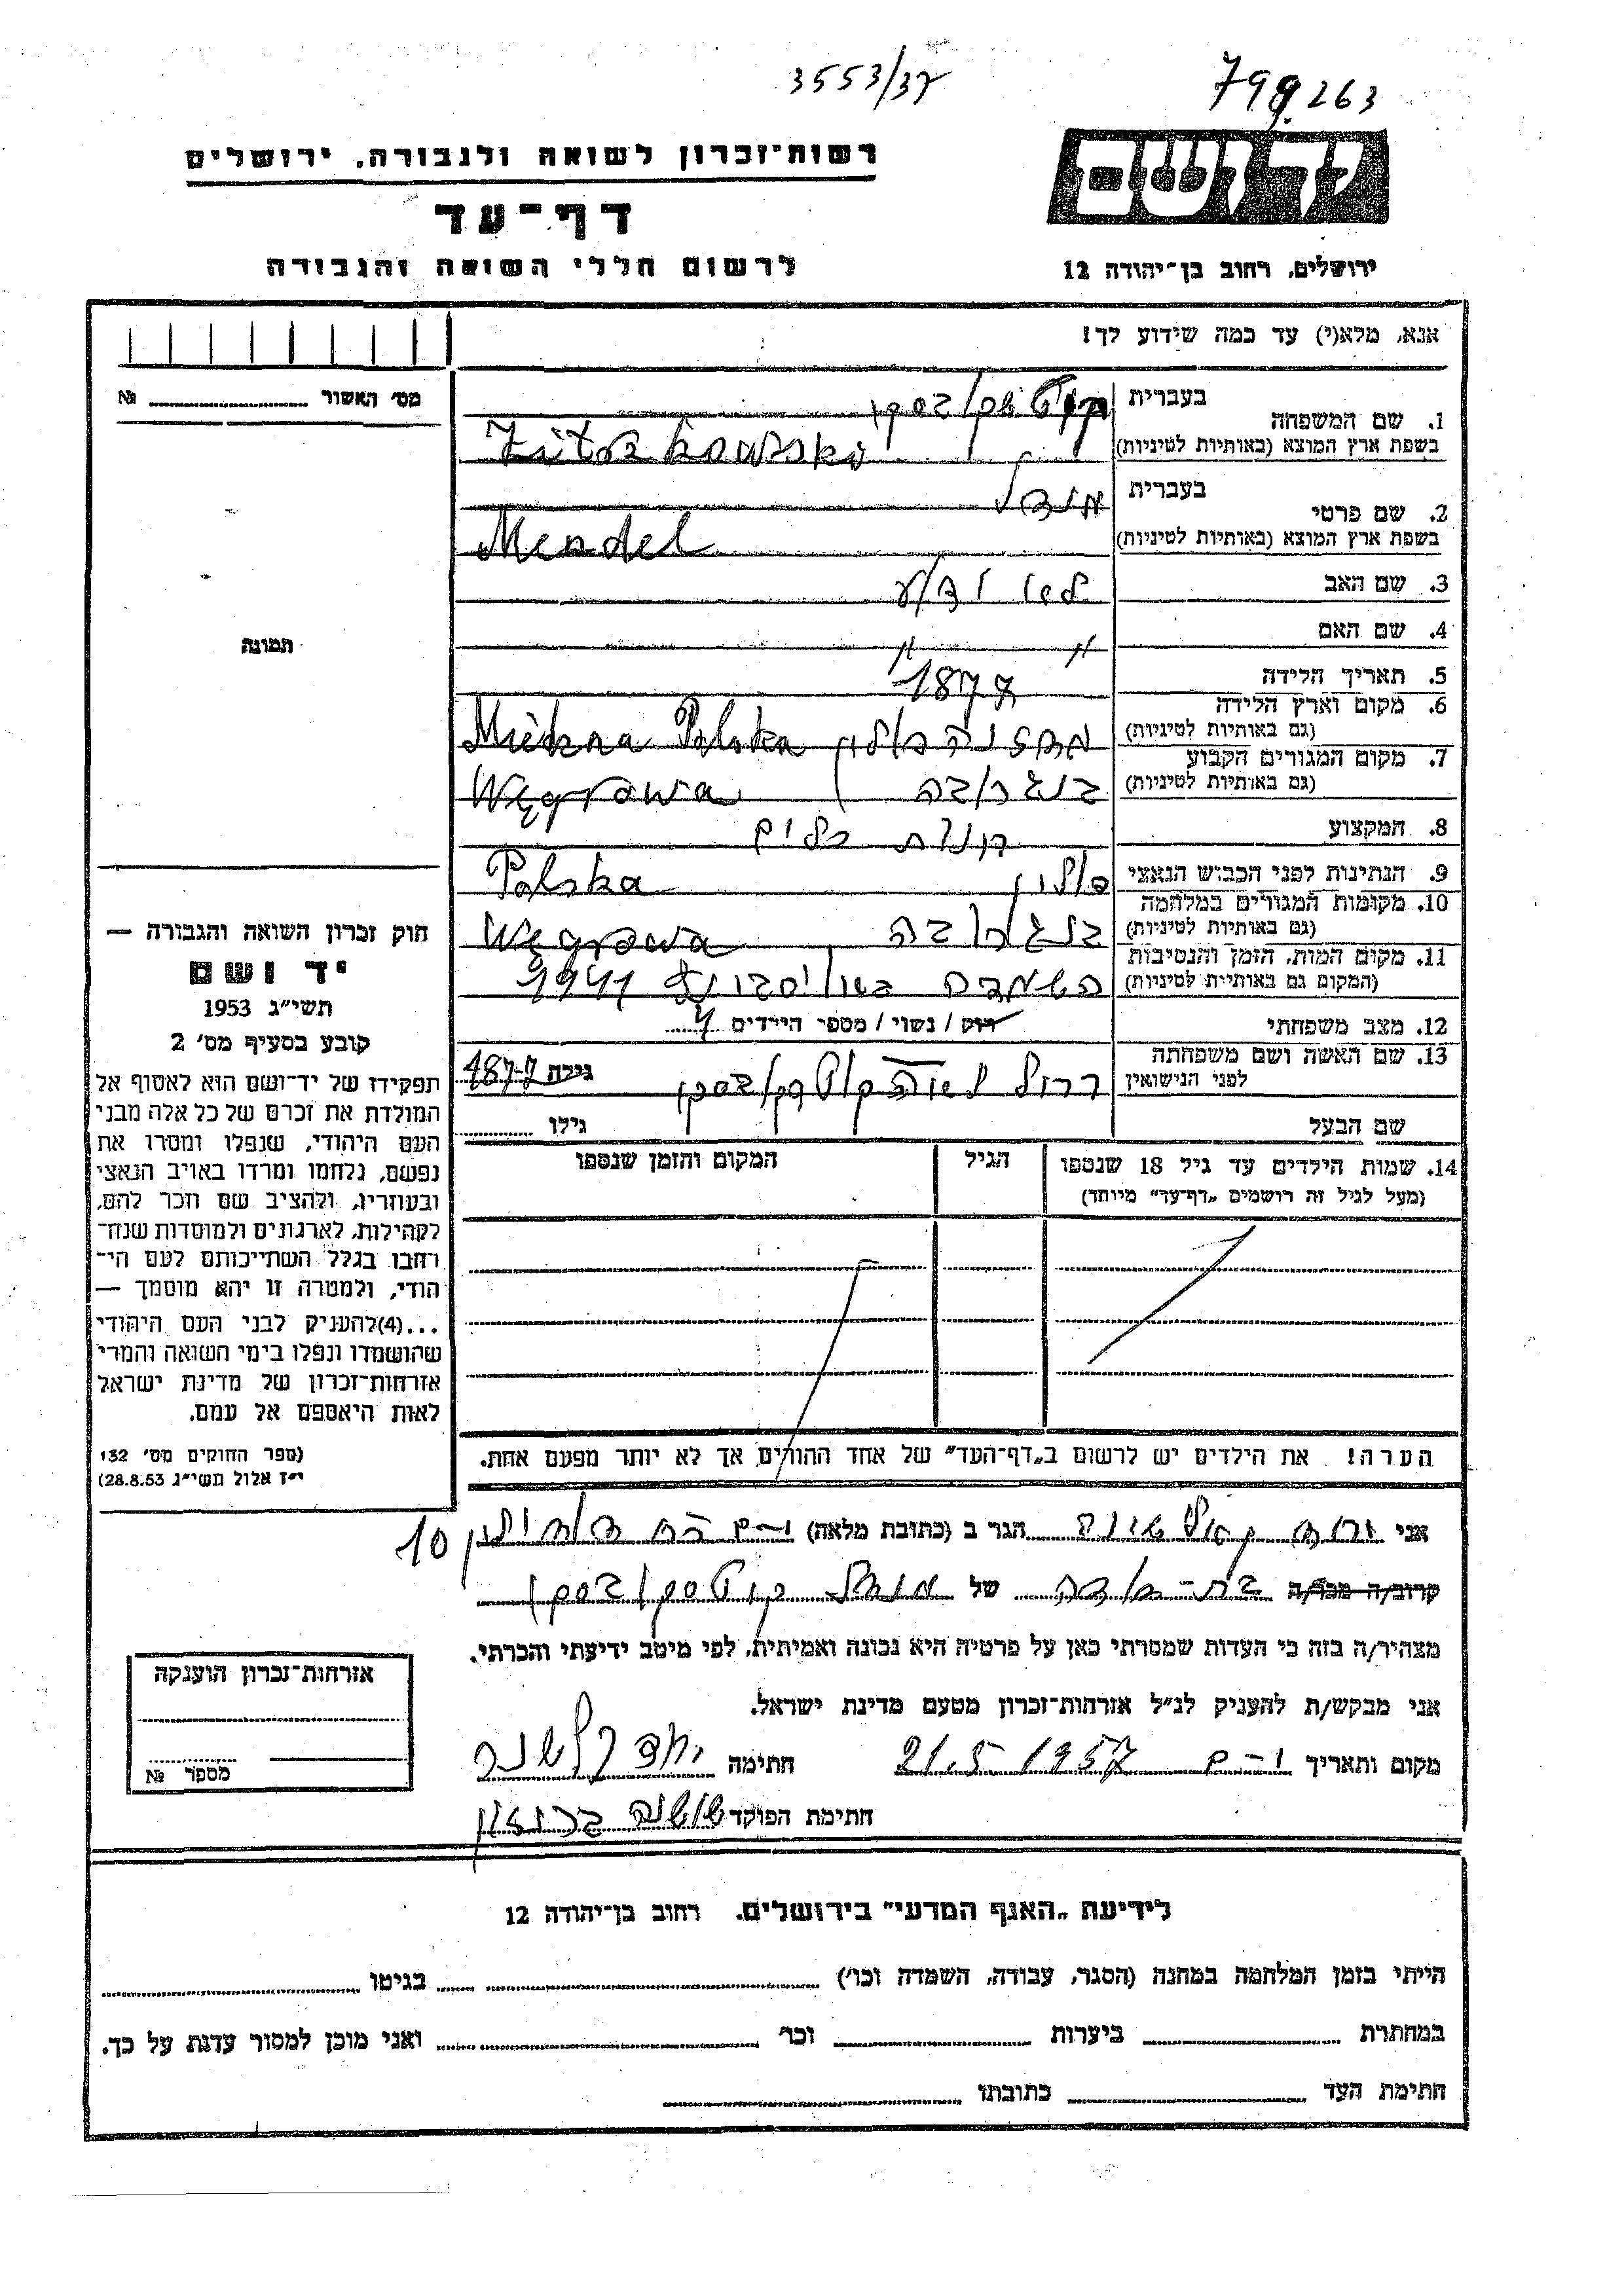 3553/37
799263
רשות־זכרון לשואה ולגבורה, ירושלים
יד ושם
דף־עד
לרשום חללי השואה והגבורה
ירושלים, רחוב בן־יהודה 12
אנא, מלא(י) עד כמה שידוע לך!
מס׳ האשור № 
1. שם המשפחה
בעברית
בשפת ארץ המוצא (באותיות לטיניות)
2. שם פרטי
בעברית מנדל
בשפת ארץ המוצא (באותיות לטיניות) Mendel
3. שם האב לא ידוע
4. שם האם " "
5. תאריך הלידה 1877
6. מקום וארץ הלידה
(גם באותיות לטיניות) פולין Polska
7. מקום המגורים הקבוע
(גם באותיות לטיניות) ונגרובה Węgrowa
8. המקצוע
9. הנתינות לפני הכבוש הנאצי פולין Polska
10. מקומות המגורים במלחמה
(גם באותיות לטיניות) ונגרובה Węgrowa
11. מקום המות, הזמן והנסיבות
(המקום גם באותיות לטיניות) 1941
12. מצב משפחתי רוק / נשוי / מספר הילדים 4
13. שם האשה ושם משפחתה
לפני הנישואין גילה 1877
שם הבעל גילו
14. שמות הילדים עד גיל 18 שנספו
(מעל לגיל זה רושמים „דף־עד” מיוחד)
הגיל
המקום והזמן שנספו
הערה! את הילדים יש לרשום ב„דף־העד” של אחד ההורים, אך לא יותר מפעם אחת.
תמונה
חוק זכרון השואה והגבורה —
יד ושם
תשי״ג 1953
קובע בסעיף מס׳ 2
תפקידו של יד־ושם הוא לאסוף אל
המולדת את זכרם של כל אלה מבני
העם היהודי, שנפלו ומסרו את
נפשם, נלחמו ומרדו באויב הנאצי
ובעוזריו, ולהציב שם וזכר להם,
לקהילות, לארגונים ולמוסדות שנח־
רבו בגלל השתייכותם לעם הי־
הודי, ולמטרה זו יהא מוסמך —
...(4)להעניק לבני העם היהודי
שהושמדו ונפלו בימי השואה והמרי
אזרחות־זכרון של מדינת ישראל
לאות היאספם אל עמם.
(ספר החוקים מס׳ 132
י״ז אלול תשי״ג 28.8.53)
אני הגר ב (כתובת מלאה) י-ם 10
קרוב/ה מכר/ה של מנדל
מצהיר/ה בזה כי העדות שמסרתי כאן על פרטיה היא נכונה ואמיתית, לפי מיטב ידיעתי והכרתי.
אני מבקש/ת להעניק לנ״ל אזרחות־זכרון מטעם מדינת ישראל.
מקום ותאריך י-ם 21.5.1957 חתימה
חתימת הפוקד
אזרחות־זכרון הוענקה
מספר №
לידיעת „האגף המדעי” בירושלים, רחוב בן־יהודה 12
הייתי בזמן המלחמה במחנה (הסגר, עבודה, השמדה וכו׳) בגיטו
במחתרת ביערות וכו׳ ואני מוכן למסור עדות על כך.
חתימת העד כתובתו